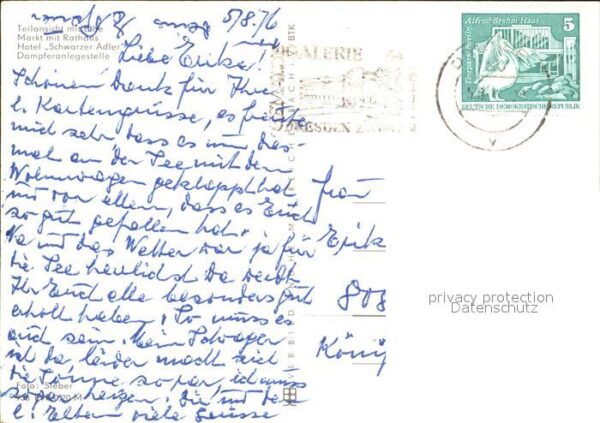 Teilansicht mit Elbe
Markt mit Rathaus
Hotel „Schwarzer Adler"
Dampferanlegestelle
5/8.76
Liebe Erika!
Schönen Dank für Ihre
l. Kartengrüsse, es freute
mich sehr dass es nun die-
mal an der See mit dem
Wohnwagen geklappt hat
und vor allem, dass es Euch
so gut gefallen hat.
Na und das Wetter war ja für
die See herrlichst. Da werdet
Ihr Euch alle besonders gut
erholt haben, So muss es
auch sein. Mein Schwager
ist da, leider macht sich
die Sonne so rar, ich muss
sogar heizen. Sie und die
l. Eltern viele Grüsse
Foto: Sieber
BTK
GALERIE
DRESDEN
Alfred-Brehm-Haus
Tierpark Berlin
5
DEUTSCHE DEMOKRATISCHE REPUBLIK
Frau
Erik
808
König
privacy protection
Datenschutz